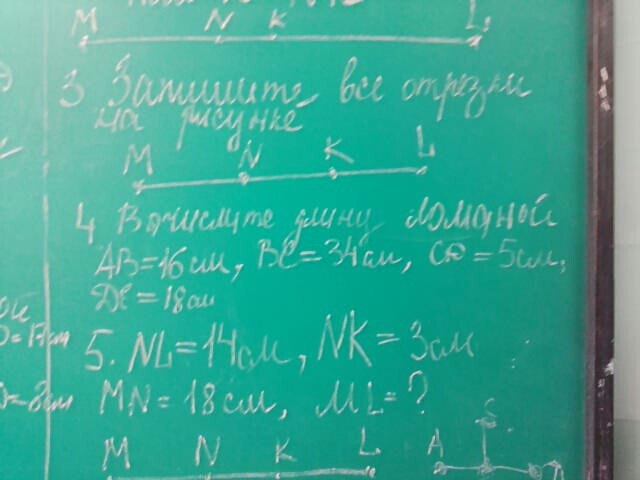 M N K L
3 Запишите все отрезки
на рисунке
M N K L
4 Вычислите длину ломаной
AB=16см, BC=34см, CD=5см,
DE=18см
5. NL=14см, NK=3см
MN=18см, ML=?
M N K L
A C
ой
=17см
=8см